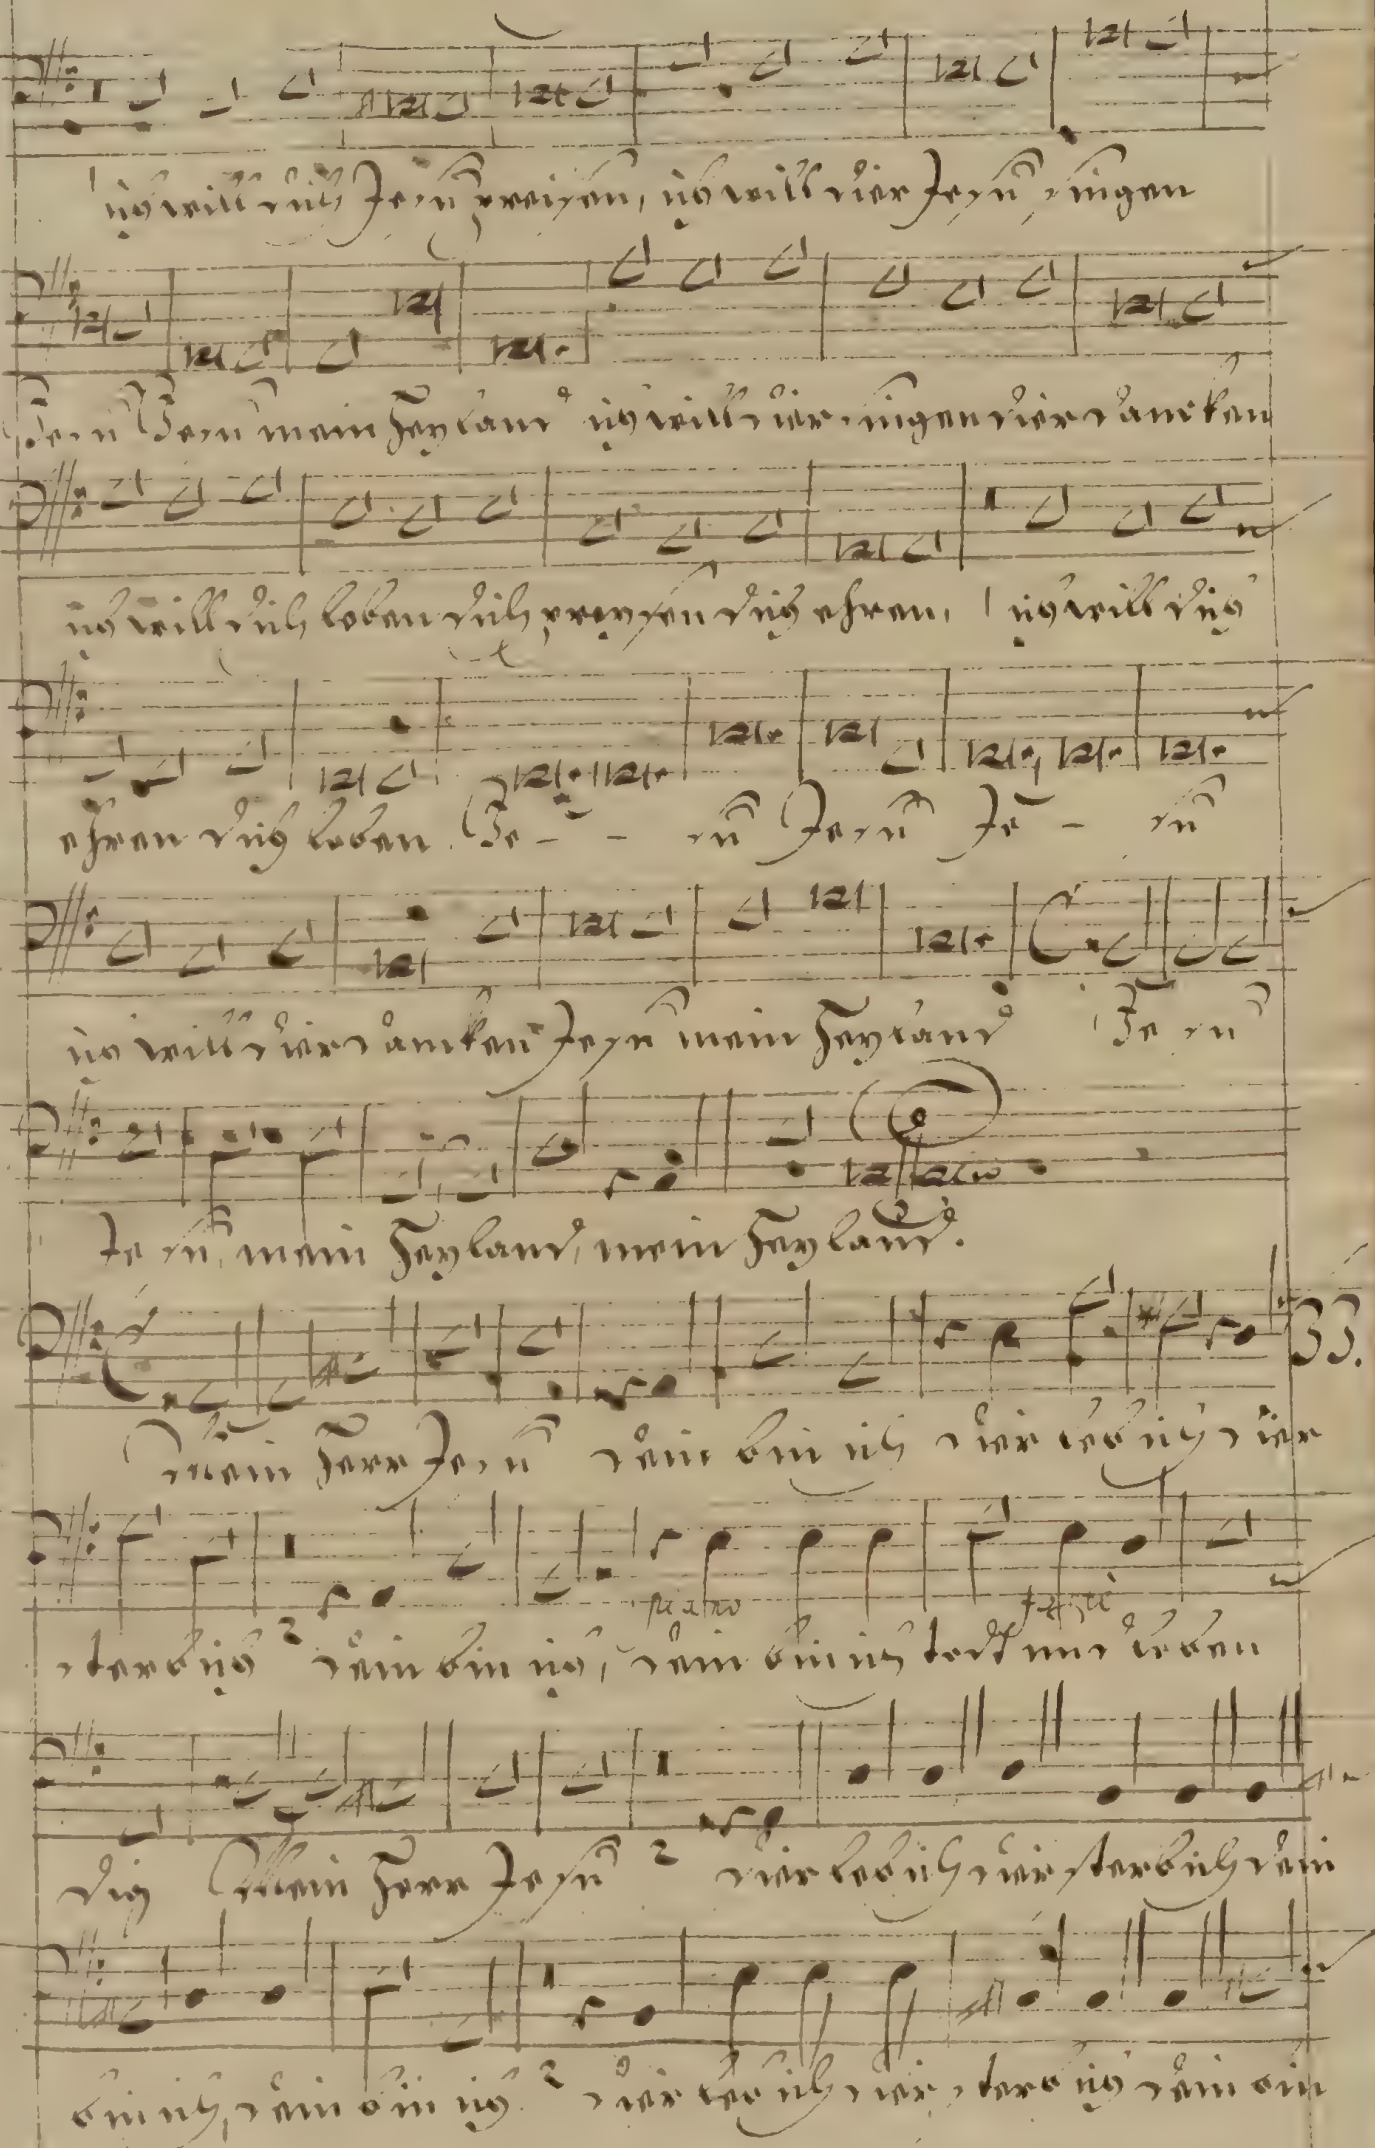 ich will dich Jesu preisen, ich will dier Jesu singen
Jesu Jesu mein Heyland ich will dier singen dier dancken
ich will dich loben dich preysen dich ehren, ich will dich
ehren dich loben Je - - su Jesu Je - su
ich will dier dancken Jesu mein Heyland Je su
Je su, mein Heyland, mein Heyland.
33.
Mein Herr Jesu dein bin ich dier leb ich dier
piano forte
sterb ich dein bin ich, dein bin ich todt und leben
dig Mein Herr Jesu dier leb ich dier sterb ich dein
bin ich, dein bin ich dier leb ich dier sterb ich dein bin